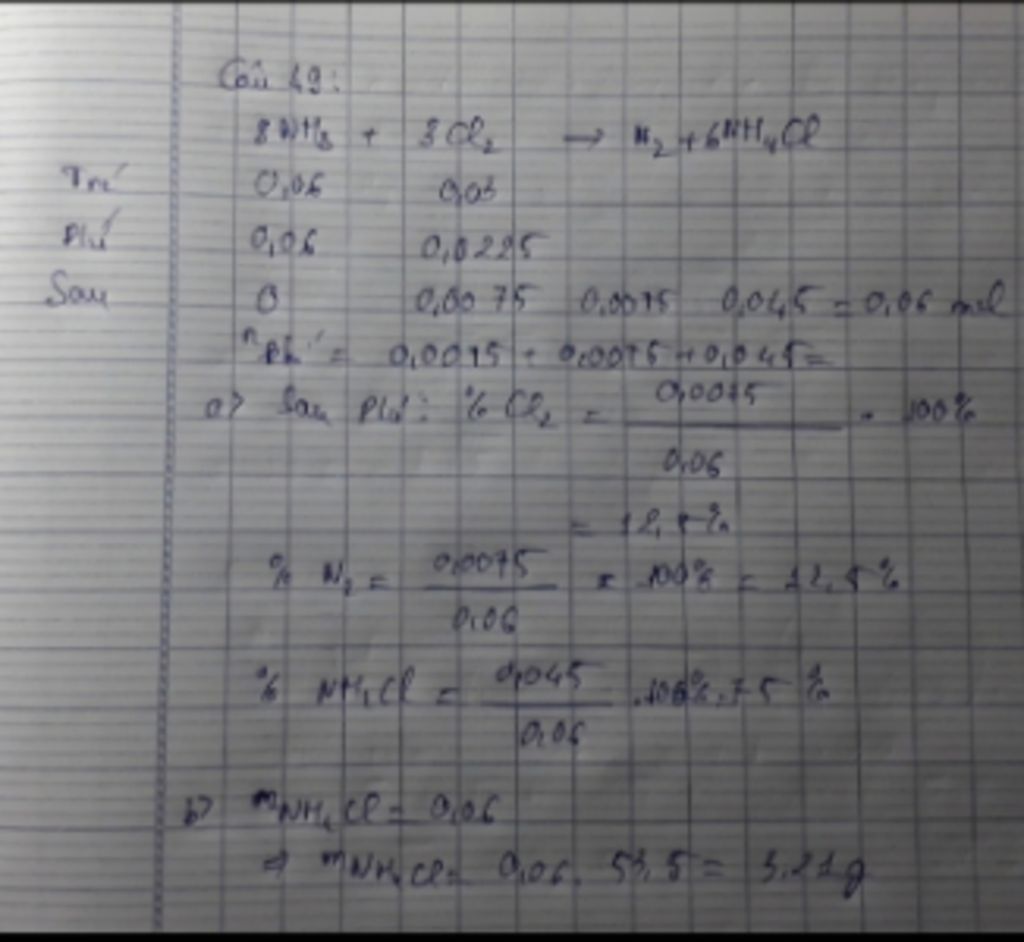 Câu 49:
8NH3 + 3Cl2 → N2 + 6NH4Cl
Trc 0,06 0,03
Pứ 0,06 0,0225
Sau 0 0,0075 0,0075 0,045 = 0,06 mol
= 0,0075 + 0,0075 + 0,045 =
a> Sau Pứ: % Cl2 = 0,0075 / 0,06 . 100%
= 12,5%
% N2 = 0,0075 / 0,06 . 100% = 12,5%
% NH4Cl = 0,045 / 0,06 .100% = 75 %
b> mNH4Cl = 0,06
⇒ mNH4Cl = 0,06. 53,5 = 3,21g